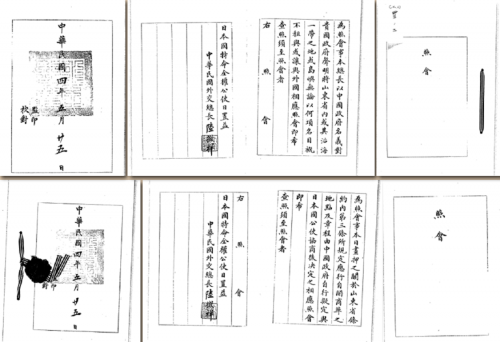 照會
為照會事本總長以中國政府名義對
貴國政府聲明將山東省內或其沿海
一帶之地或島嶼無論以何項名目概
不租與或讓與外國相應照會即希
查照須至照會者
右照會
日本國特命全權公使日置益
中華民國外交總長陸徵祥
中華民國四年五月廿五日
監印
校對
照會
為照會事本日畫押之關於山東省條
約內第三條所規定應行自開商埠之
地點及章程由中國政府自行擬定與
日本國公使協商決定之相應照會
即希
查照須至照會者
右照會
日本國特命全權公使日置益
中華民國外交總長陸徵祥
中華民國四年五月廿五日
印
對